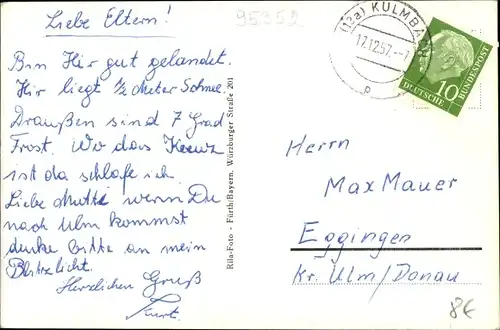 Liebe Eltern!
95352
Bin Hir gut gelandet.
Hir liegt ½ Meter Schnee.
Draußen sind 7 Grad
Frost. Wo das Kreuz
ist da schlafe ich
Liebe Mutti wenn Du
nach Ulm kommst
denke bitte an mein
Blitzlicht.
Herzlichen Gruß
Kurt.
Rila-Foto - Fürth/Bayern, Würzburger Straße 201
(13a) KULMBACH
17.12.57.
p
10
DEUTSCHE BUNDESPOST
Herrn
Max Mauer
Eggingen
Kr. Ulm/Donau
8€